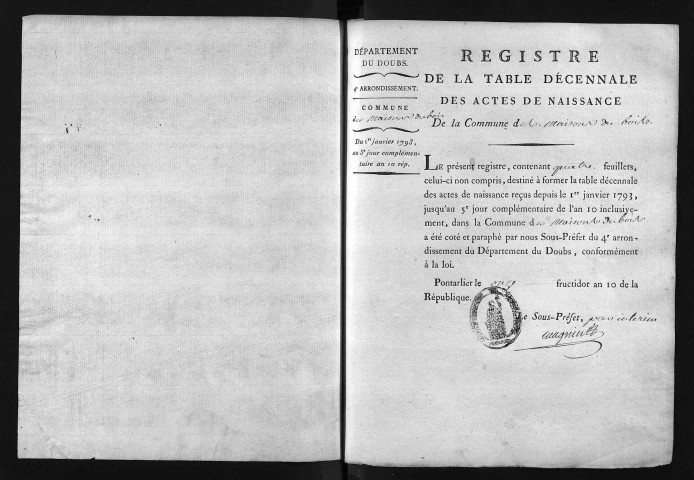 DÉPARTEMENT
DU DOUBS.
4e ARRONDISSEMENT.
COMMUNE
des Maisons du bois
Du 1er janvier 1793,
au 5e jour complémen-
taire an 10 rép.
REGISTRE
DE LA TABLE DÉCENNALE
DES ACTES DE NAISSANCE
De la Commune des Maisons du bois
LE présent registre, contenant quatre feuillets,
celui-ci non compris, destiné à former la table décennale
des actes de naissance reçus depuis le 1er janvier 1793,
jusqu'au 5e jour complémentaire de l'an 10 inclusive-
ment, dans la Commune des Maisons du bois
a été coté et paraphé par nous Sous-Préfet du 4e arron-
dissement du Département du Doubs, conformément
à la loi.
Pontarlier le fructidor an 10 de la
République.
Le Sous-Préfet, par interim